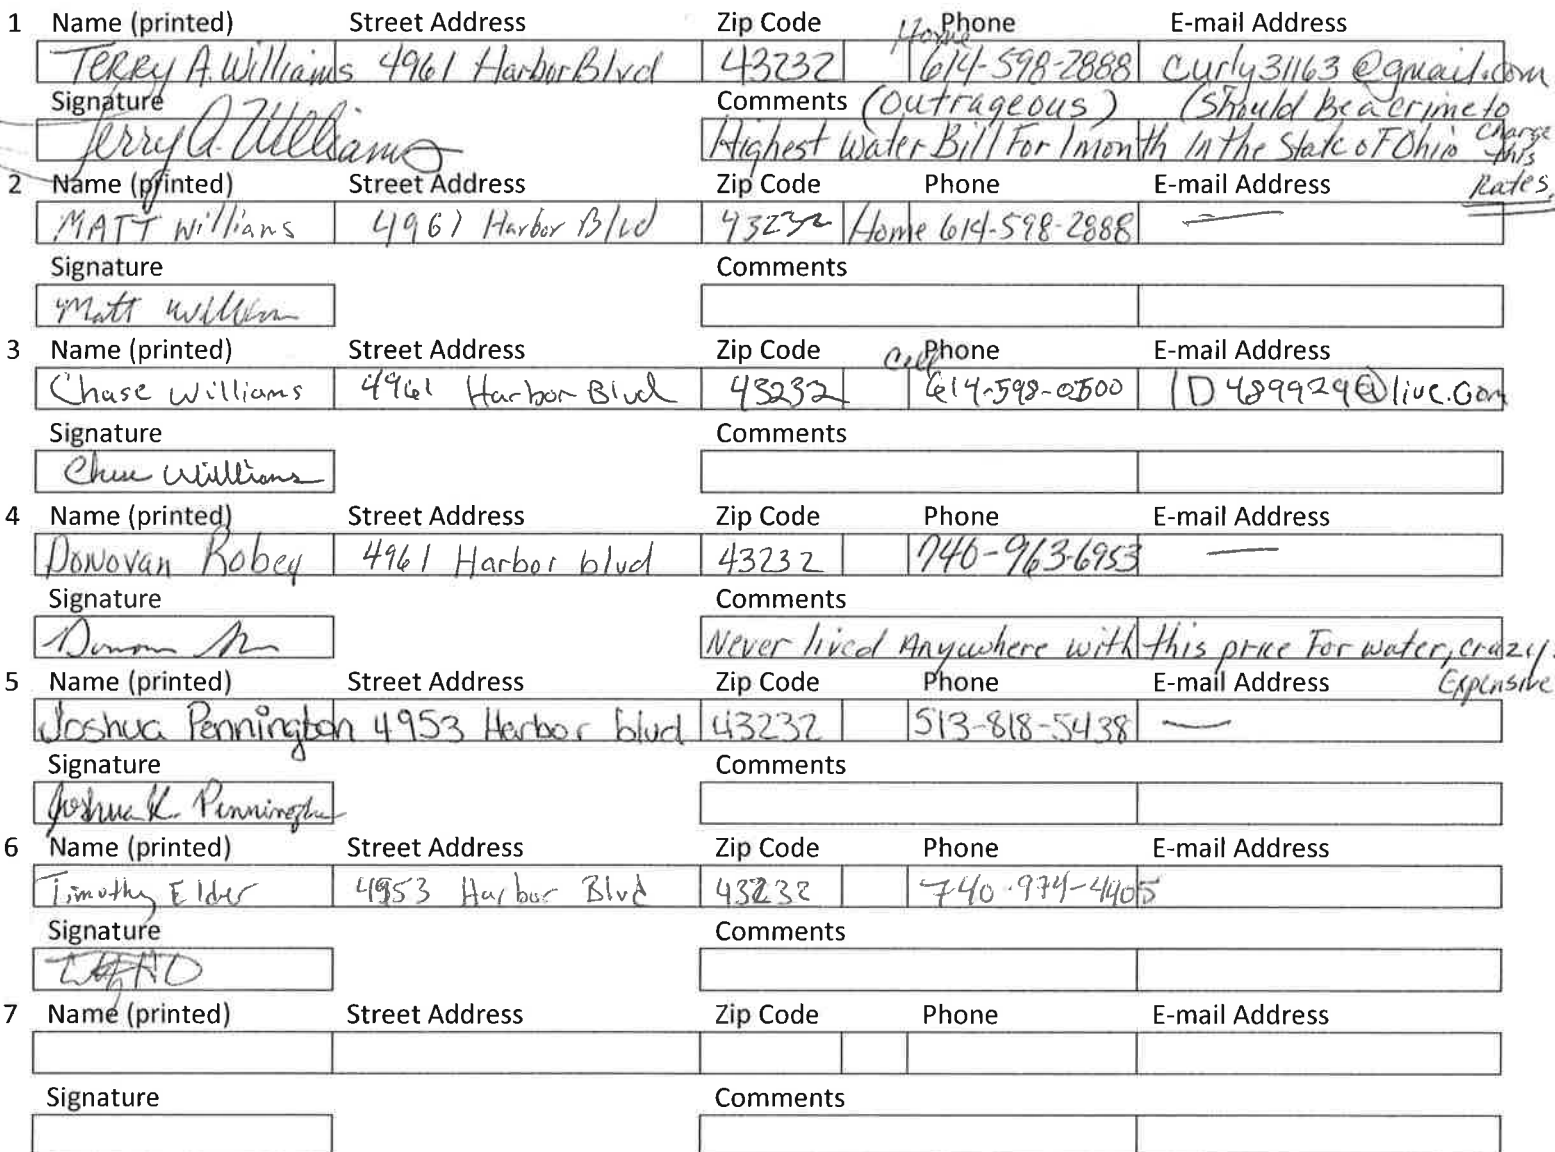 1 Name (printed) Street Address Zip Code Home Phone E-mail Address
TERRY A. Williams 4961 Harbor Blvd 43232 614-598-2888 Curly31163@gmail.com
Signature Comments (Outrageous) (Should Be a crime to
Terry A. Williams Highest Water Bill For 1 month In the State oF Ohio charge this
2 Name (printed) Street Address Zip Code Phone E-mail Address Rates.
MATT Williams 4961 Harbor Blvd 43232 Home 614-598-2888 —
Signature Comments
Matt William
3 Name (printed) Street Address Zip Code Cell Phone E-mail Address
Chase Williams 4961 Harbor Blvd 43232 614-598-0500 1D489929@live.Com
Signature Comments
Chase Williams
4 Name (printed) Street Address Zip Code Phone E-mail Address
Donovan Robey 4961 Harbor blvd 43232 740-963-6953 —
Signature Comments
Never lived Anywhere with this price For water, crazy.
5 Name (printed) Street Address Zip Code Phone E-mail Address Expensive
Joshua Pennington 4953 Harbor blvd 43232 513-818-5438 —
Signature Comments
Joshua K. Pennington
6 Name (printed) Street Address Zip Code Phone E-mail Address
Timothy Elder 4953 Harbor Blvd 43232 740-974-4405
Signature Comments
7 Name (printed) Street Address Zip Code Phone E-mail Address
Signature Comments